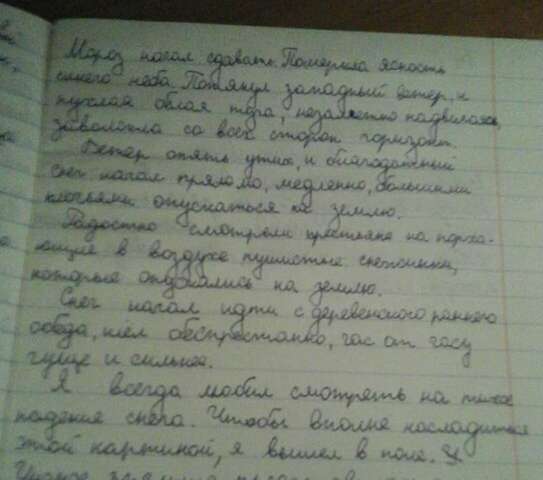 Мороз начал сдавать. Померкла ясность
синего неба. Потянул западный ветер, и
пухлая белая туча, незаметно надвигаясь,
заволокла со всех сторон горизонт.
Ветер опять утих, и благодатный
снег начал прямо, медленно, большими
клочьями опускаться на землю.
Радостно смотрели крестьяне на порха-
ющие в воздухе пушистые снежинки,
которые опускались на землю.
Снег начал идти с деревенского раннего
обеда, шёл беспрестанно, час от часу
гуще и сильнее.
Я всегда любил смотреть на тихое
падение снега. Чтобы вполне насладиться
этой картиной, я вышел в поле. И
Чудное зрелище